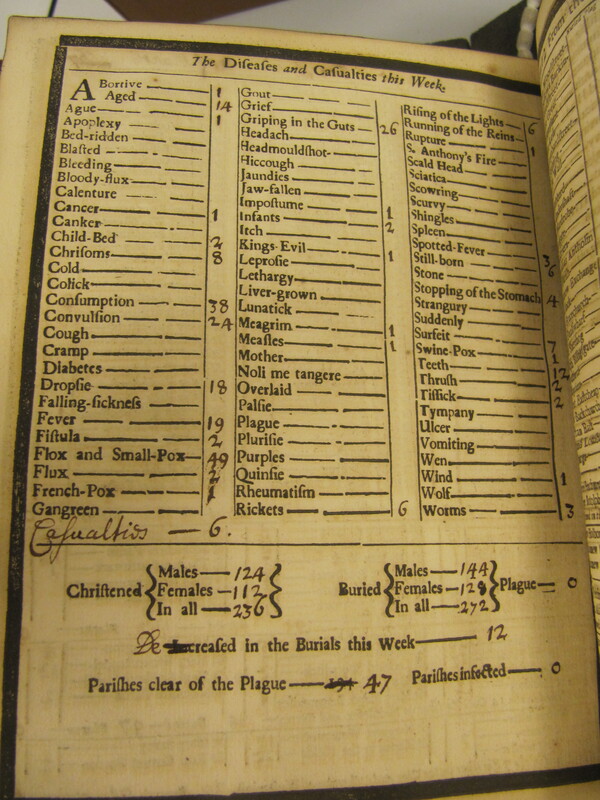 The Diſeaſes and Caſualties this Week.
ABortive 1
Aged 14
Ague
Apoplexy 1
Bed-ridden
Blaſted
Bleeding
Bloody-flux
Calenture
Cancer 1
Canker
Child-Bed 2
Chriſoms 8
Cold
Colick
Conſumption 38
Convulſion 24
Cough
Cramp
Diabetes
Dropſie 18
Falling-ſickneſs
Fever 19
Fiſtula 2
Flox and Small-Pox 49
Flux 2
French-Pox 1
Gangreen
Caſualties — 6.
Gout
Grief
Griping in the Guts 26
Headach
Headmouldſhot
Hiccough
Jaundies
Jaw-fallen
Impoſtume 1
Infants 2
Itch
Kings-Evil 1
Leproſie
Lethargy
Liver-grown
Lunatick
Meagrim 1
Meaſles 1
Mother
Noli me tangere
Overlaid
Palſie
Plague
Pluriſie
Purples
Quinſie
Rheumatiſm
Rickets 6
Riſing of the Lights 6
Running of the Reins
Rupture 1
S. Anthony's Fire
Scald Head
Sciatica
Scowring
Scurvy
Shingles
Spleen
Spotted-Fever 3
Still-born 6
Stone
Stopping of the Stomach 4
Strangury
Suddenly
Surfeit 7
Swine-Pox 1
Teeth 12
Thruſh 2
Tiſſick 2
Tympany
Ulcer
Vomiting
Wen
Wind 1
Wolf
Worms 3
Chriſtened
Males — 124
Females — 112
In all — 236
Buried
Males — 144
Females — 128
In all — 272
Plague — 0
Decreaſed in the Burials this Week — 12
Pariſhes clear of the Plague — 47 Pariſhes infected — 0